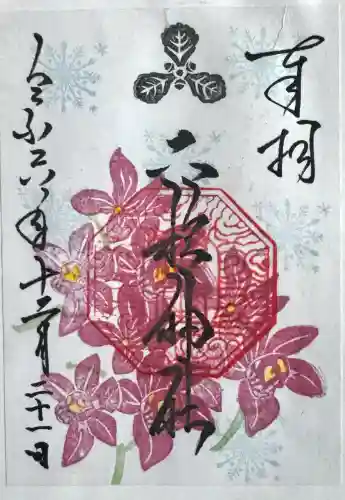 奉拝
六所神社
令和六年十二月二十一日